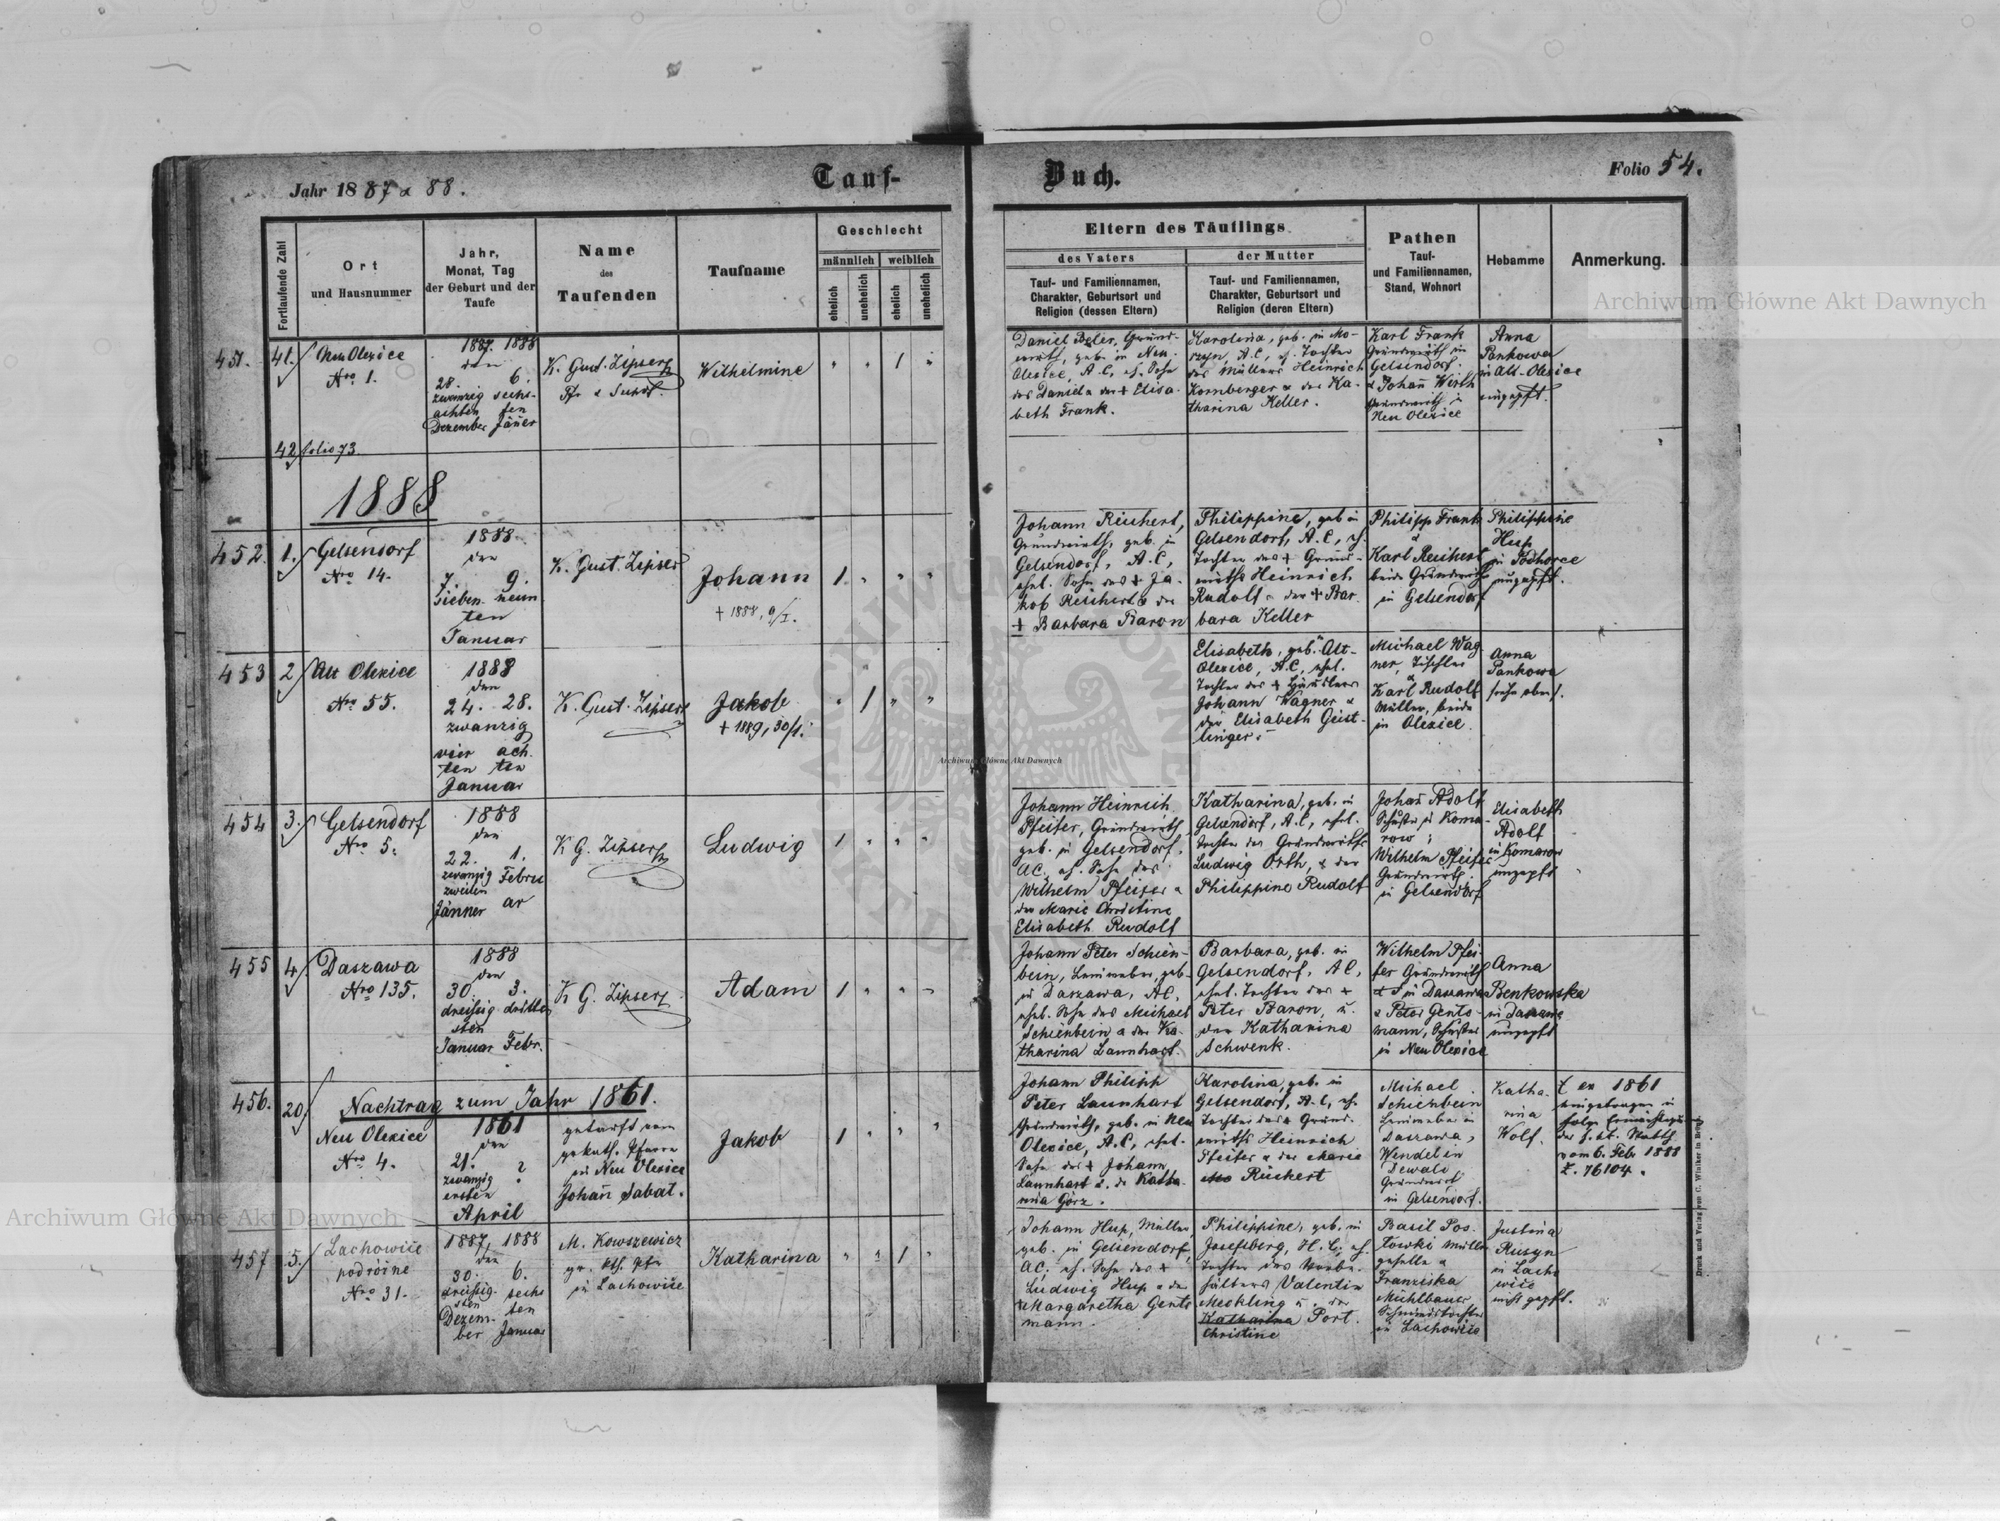 Jahr 1887 & 88.
Tauf-
Buch.
Folio 54.
Fortlaufende Zahl
Ort
und Hausnummer
Jahr,
Monat, Tag
der Geburt und der
Taufe
Name
des
Taufenden
Taufname
Geschlecht
männlich
weiblich
ehelich
unehelich
ehelich
unehelich
Eltern des Täuflings
des Vaters
Tauf- und Familiennamen,
Charakter, Geburtsort und
Religion (dessen Eltern)
der Mutter
Tauf- und Familiennamen,
Charakter, Geburtsort und
Religion (deren Eltern)
Pathen
Tauf-
und Familiennamen,
Stand, Wohnort
Hebamme
Anmerkung.
451.
41.
Neu Olexice
Nro 1.
1887. 1888
den
28. 6.
zwanzig sechs-
achten ten
Dezember Jäner
K. Gust. Zipser
Pfr & Senior.
Wilhelmine
" " 1 "
Grund-
wirth, geb. in Neu
Olexice, A.C., eh. Sohn
des Daniel u. der + Elisa-
beth Frank.
Karolina, geb. in Mo-
A.C., eh. Tochter
des Müllers Heinrich
Kornberger u. der Ka-
tharina Keller.
Karl Frank
Grundwirth in
Gelsendorf.
& Johañ Wirth
Grundwirth in
Neu Olexice
Anna
Pankowa
in Alt-Olexice
ungepft.
42 folio 73
1888
452.
1.
Gelsendorf
Nro 14.
1888
den
7. 9.
sieben neun
ten
Januar
K. Gust. Zipser
Johann
+ 1888, 9/I.
1 " " "
Johann Reichert,
Grundwirth, geb. in
Gelsendorf, A.C.,
ehel. Sohn des + Ja-
kob Reichert u. der
+ Barbara Baron
Philippine, geb in
Gelsendorf, A.C., eh.
Tochter des + Grund-
wirths Heinrich
Rudolf u. der + Bar-
bara Keller
Philipp Frank
&
Karl Reichert
beide Grundwirthe
in Gelsendorf
Philippine
Hup
in Podhorce
ungepft.
453
2
Alt Olexice
Nro 55.
1888
den
24. 28.
zwanzig
vier ach-
ten ten
Januar
K. Gust. Zipser
Jakob
+ 1889, 30/1.
" 1 " "
Elisabeth, geb. Alt-
Olexice, A.C., ehel.
Tochter des + Häuslers
Johann Wagner u.
der Elisabeth Geist-
linger.
Michael Wag
ner, Tischler
&
Karl Rudolf
Müller, beide
in Olexice.
Anna
Pankowa
siehe oben 1.
454
3.
Gelsendorf
Nro 5.
1888
den
22. 1.
zwanzig Febru
zweiten
Jänner ar
K G. Zipser
Ludwig
1 " " "
Johann Heinrich
Pfeifer, Grundwirth
geb. in Gelsendorf,
AC, eh. Sohn des
Wilhelm Pfeifer u.
der Marie Christine
Elisabeth Rudolf
Katharina, geb. in
Gelsendorf, A.C., ehel.
Tochter des Grundwirths
Ludwig Orth, u. der
Philippine Rudolf
Johañ Adolf
Schuster in Koma-
row;
Wilhelm Pfeifer
Grundwirth
in Gelsendorf
Elisabeth
Adolf
in Komarow
ungepft
455
4
Daszawa
Nro 135.
1888
den
30. 3.
dreißig dritte
sten
Januar Febr.
K G. Zipser
Adam
1 " " "
Johann Peter Schien-
bein, Leinweber, geb.
in Daszawa, AC,
ehel. Sohn des Michael
Schienbein u. der Ka-
tharina Launhart.
Barbara, geb. in
Gelsendorf, AC,
ehel. Tochter des +
Peter Baron, u.
der Katharina
Schwenk.
Wilhelm Pfei-
fer Grundwirth
in Daszawa
& Peter Gents-
mann, Schuster
in Neu Olexice
Anna
Benkowska
in Daszawa
ungepft
456.
20
Nachtrag zum Jahr 1861.
Neu Olexice
Nro 4.
1861
den
21. ?
zwanzig
ersten
April
getauft vom
gr. kath. Pfarrer
in Neu Olexice
Johañ Sabat.
Jakob
1 " " "
Johann Philipp
Peter Launhart
Grundwirth, geb. in Neu
Olexice, A.C., ehel.
Sohn des + Johann
Launhart u. der Katha-
rina Görz.
Karolina, geb. in
Gelsendorf, A.C., eh.
Tochter des + Grund-
wirths Heinrich
Pfeifer u. der Marie
Rückert
Michael
Schienbein
Leinweber in
Daszawa,
Wendelin
Dewald
Grundwirth
in Gelsendorf.
Katha-
rina
Wolf.
ex 1861
eingetragen in
folge Ermächtigung
der h. kk. Statth.
vom 6. Feb 1888
Z. 76104.
457
5.
Lachowice
podróżne
Nro 31.
1887, 1888
den
30. 6.
dreißig- sechs
sten
Dezem- ten
ber Januar
M. Kowszewicz
gr. kth. Pfr
in Lachowice
Katharina
" " 1 "
Johann Hup, Müller,
geb. in Gelsendorf,
AC, eh. Sohn des +
Ludwig Hup u. der
+ Margaretha Gents
mann.
Philippine, geb. in
Josefsberg, H.C., eh.
Tochter des
Valentin
Meckling u. der
Katharina Port.
Christine
Basil
Müller
geselle u.
Franziska
Mühlbauer
Schmiedstochter
in Lachowice
Justina
Rusyn
in Lacho
wice
nicht gepft.
Druck und Verlag von C. Winiker in Brünn.
Archiwum Główne Akt Dawnych
Archiwum Główne Akt Dawnych
Archiwum Główne Akt Dawnych